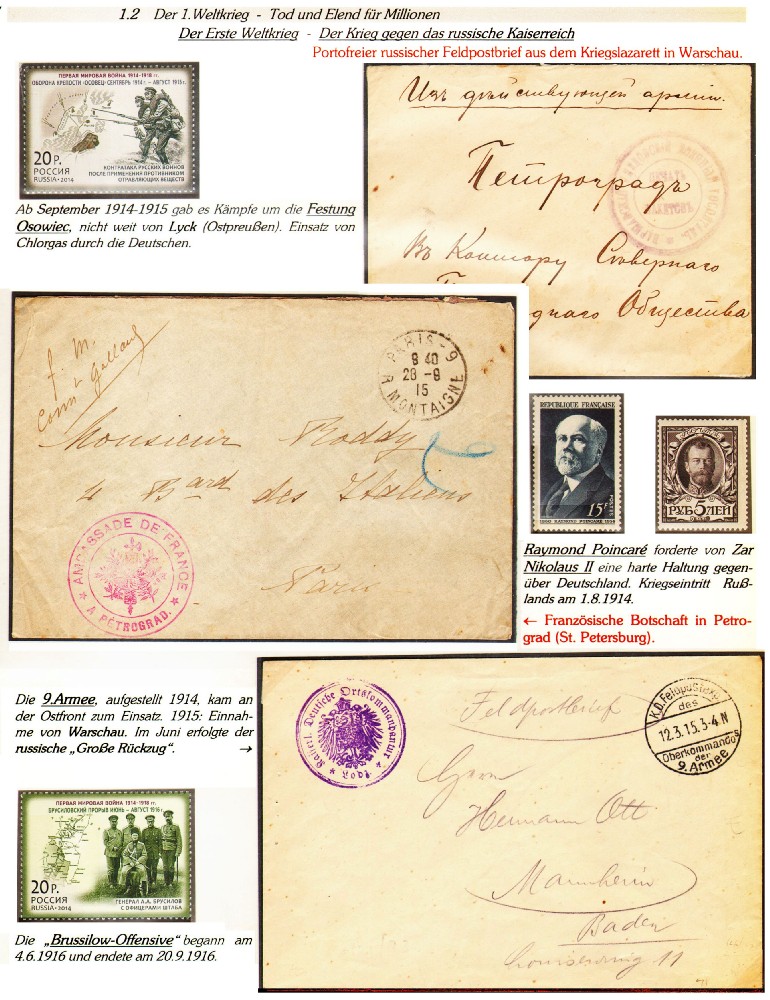 1.2 Der 1.Weltkrieg - Tod und Elend für Millionen
Der Erste Weltkrieg - Der Krieg gegen das russische Kaiserreich
Portofreier russischer Feldpostbrief aus dem Kriegslazarett in Warschau.
ПЕРВАЯ МИРОВАЯ ВОЙНА 1914-1918 гг.
ОБОРОНА КРЕПОСТИ «ОСОВЕЦ» СЕНТЯБРЬ 1914 г. – АВГУСТ 1915 г.
КОНТРАТАКА РУССКИХ ВОИНОВ
ПОСЛЕ ПРИМЕНЕНИЯ ПРОТИВНИКОМ
ОТРАВЛЯЮЩИХ ВЕЩЕСТВ
20 Р.
РОССИЯ
RUSSIA • 2014
Ab September 1914-1915 gab es Kämpfe um die Festung
Osowiec, nicht weit von Lyck (Ostpreußen). Einsatz von
Chlorgas durch die Deutschen.
Изъ дѣйствующей арміи.
Петроградъ
Въ Контору Сѣвернаго
Общества
f. M.
PARIS-9
8 40
28 -8
15
R. MONTAIGNE
Monsieur Roddy
4 Bard des Italiens
Paris
AMBASSADE DE FRANCE
A PÉTROGRAD.
REPUBLIQUE FRANÇAISE
15F
POSTES
1860 RAYMOND POINCARE 1934
5
РУБЛЕЙ
Raymond Poincaré forderte von Zar
Nikolaus II eine harte Haltung gegen-
über Deutschland. Kriegseintritt Ruß-
lands am 1.8.1914.
← Französische Botschaft in Petro-
grad (St. Petersburg).
Die 9.Armee, aufgestellt 1914, kam an
der Ostfront zum Einsatz. 1915: Einnah-
me von Warschau. Im Juni erfolgte der
russische „Große Rückzug". →
Kaiserl. Deutsche Ortskommandantur
Lodz
Feldpostbrief
K.D. Feldpostexp.
des
12.3.15.3-4.N
Oberkommandos
der
9.Armee
Herrn
Hermann Ott
Mannheim
Baden
11
ПЕРВАЯ МИРОВАЯ ВОЙНА 1914-1918 гг.
БРУСИЛОВСКИЙ ПРОРЫВ ИЮНЬ – АВГУСТ 1916 г.
20 Р.
РОССИЯ
RUSSIA • 2014
ГЕНЕРАЛ А.А. БРУСИЛОВ
С ОФИЦЕРАМИ ШТАБА
Die „Brussilow-Offensive" begann am
4.6.1916 und endete am 20.9.1916.